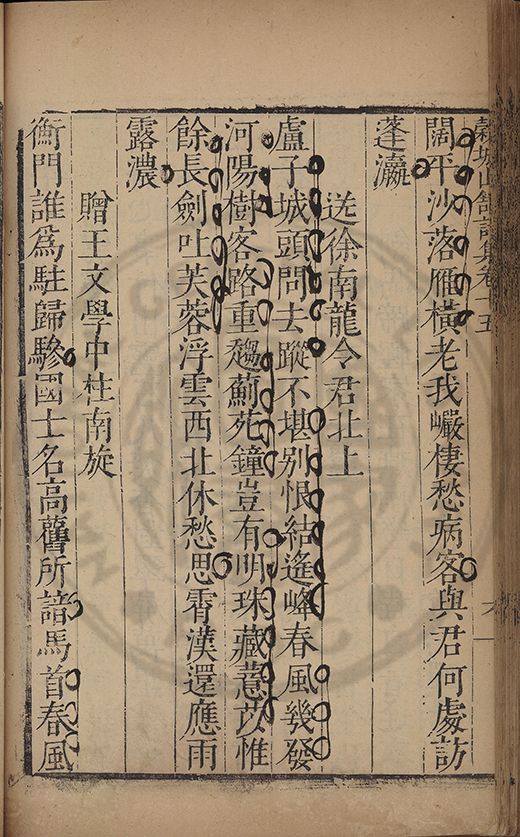 穀城山館詩集卷十五
闊平沙落雁橫老我巖棲愁病客與君何處訪
蓬瀛
送徐南龍令君北上
盧子城頭問去蹤不堪別恨結遙峰春風幾發
河陽樹客路重趨薊苑鐘豈有明珠藏薏苡惟
餘長劍吐芙蓉浮雲西北休愁思霄漢還應雨
露濃
贈王文學中柱南旋
衡門誰為駐歸驂國士名高舊所諳馬首春風